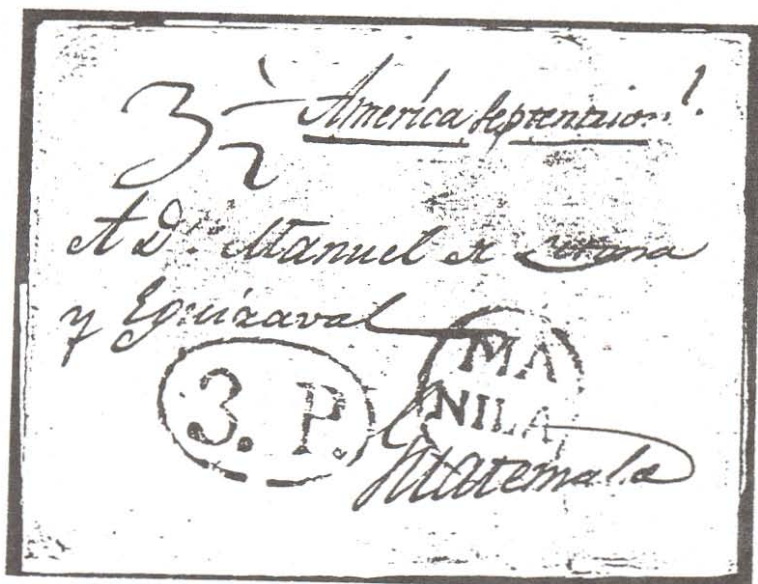 3 1/2 América Septentrion.l
A D.n Manuel de
y Eguizaval
3. P.
MA
NILA
Guatemala